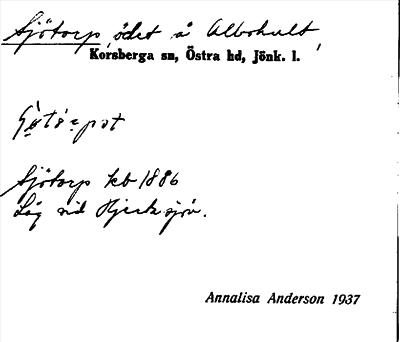 Sjötorp, ödet å Albohult,
Korsberga sn, Östra hd, Jönk. l.
Sjötorp kb 1886
Låg vid Hjertsjön.
Annalisa Anderson 1937